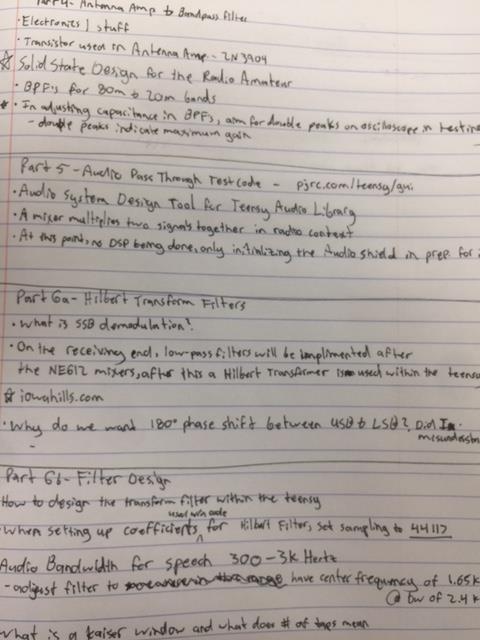 Part 4 - Antenna Amp to Bandpass filter
- Electronics 1 stuff
Transistor used in Antenna Amp - 2N3904
☆ Solid State Design for the Radio Amateur
• BPFs for 80m & 20m bands
• In adjusting capacitance in BPFs, aim for double peaks on oscilloscope in testing
- double peaks indicate maximum gain
Part 5 - Audio Pass Through Test code - pjrc.com/teensy/gui
• Audio System Design Tool for Teensy Audio Library
• A mixer multiplies two signals together in radio context
• At this point, no DSP being done, only initializing the Audio shield in prep for
Part 6a - Hilbert Transform Filters
• What is SSB demodulation?
• On the receiving end, low-pass filters will be implimented after
the NE612 mixers, after this a Hilbert Transformer is used within the teensy
☆ iowahills.com
• Why do we want 180° phase shift between USB & LSB?, Did I
misunderstand
Part 6b - Filter Design
How to design the transform filter within the teensy
• When setting up coefficients for Hilbert Filters, set sampling to 44117
Audio Bandwidth for Speech 300 - 3k Hertz
- adjust filter to have center frequency of 1.65k
@ bw of 2.4k
What is a kaiser window and what does # of taps mean